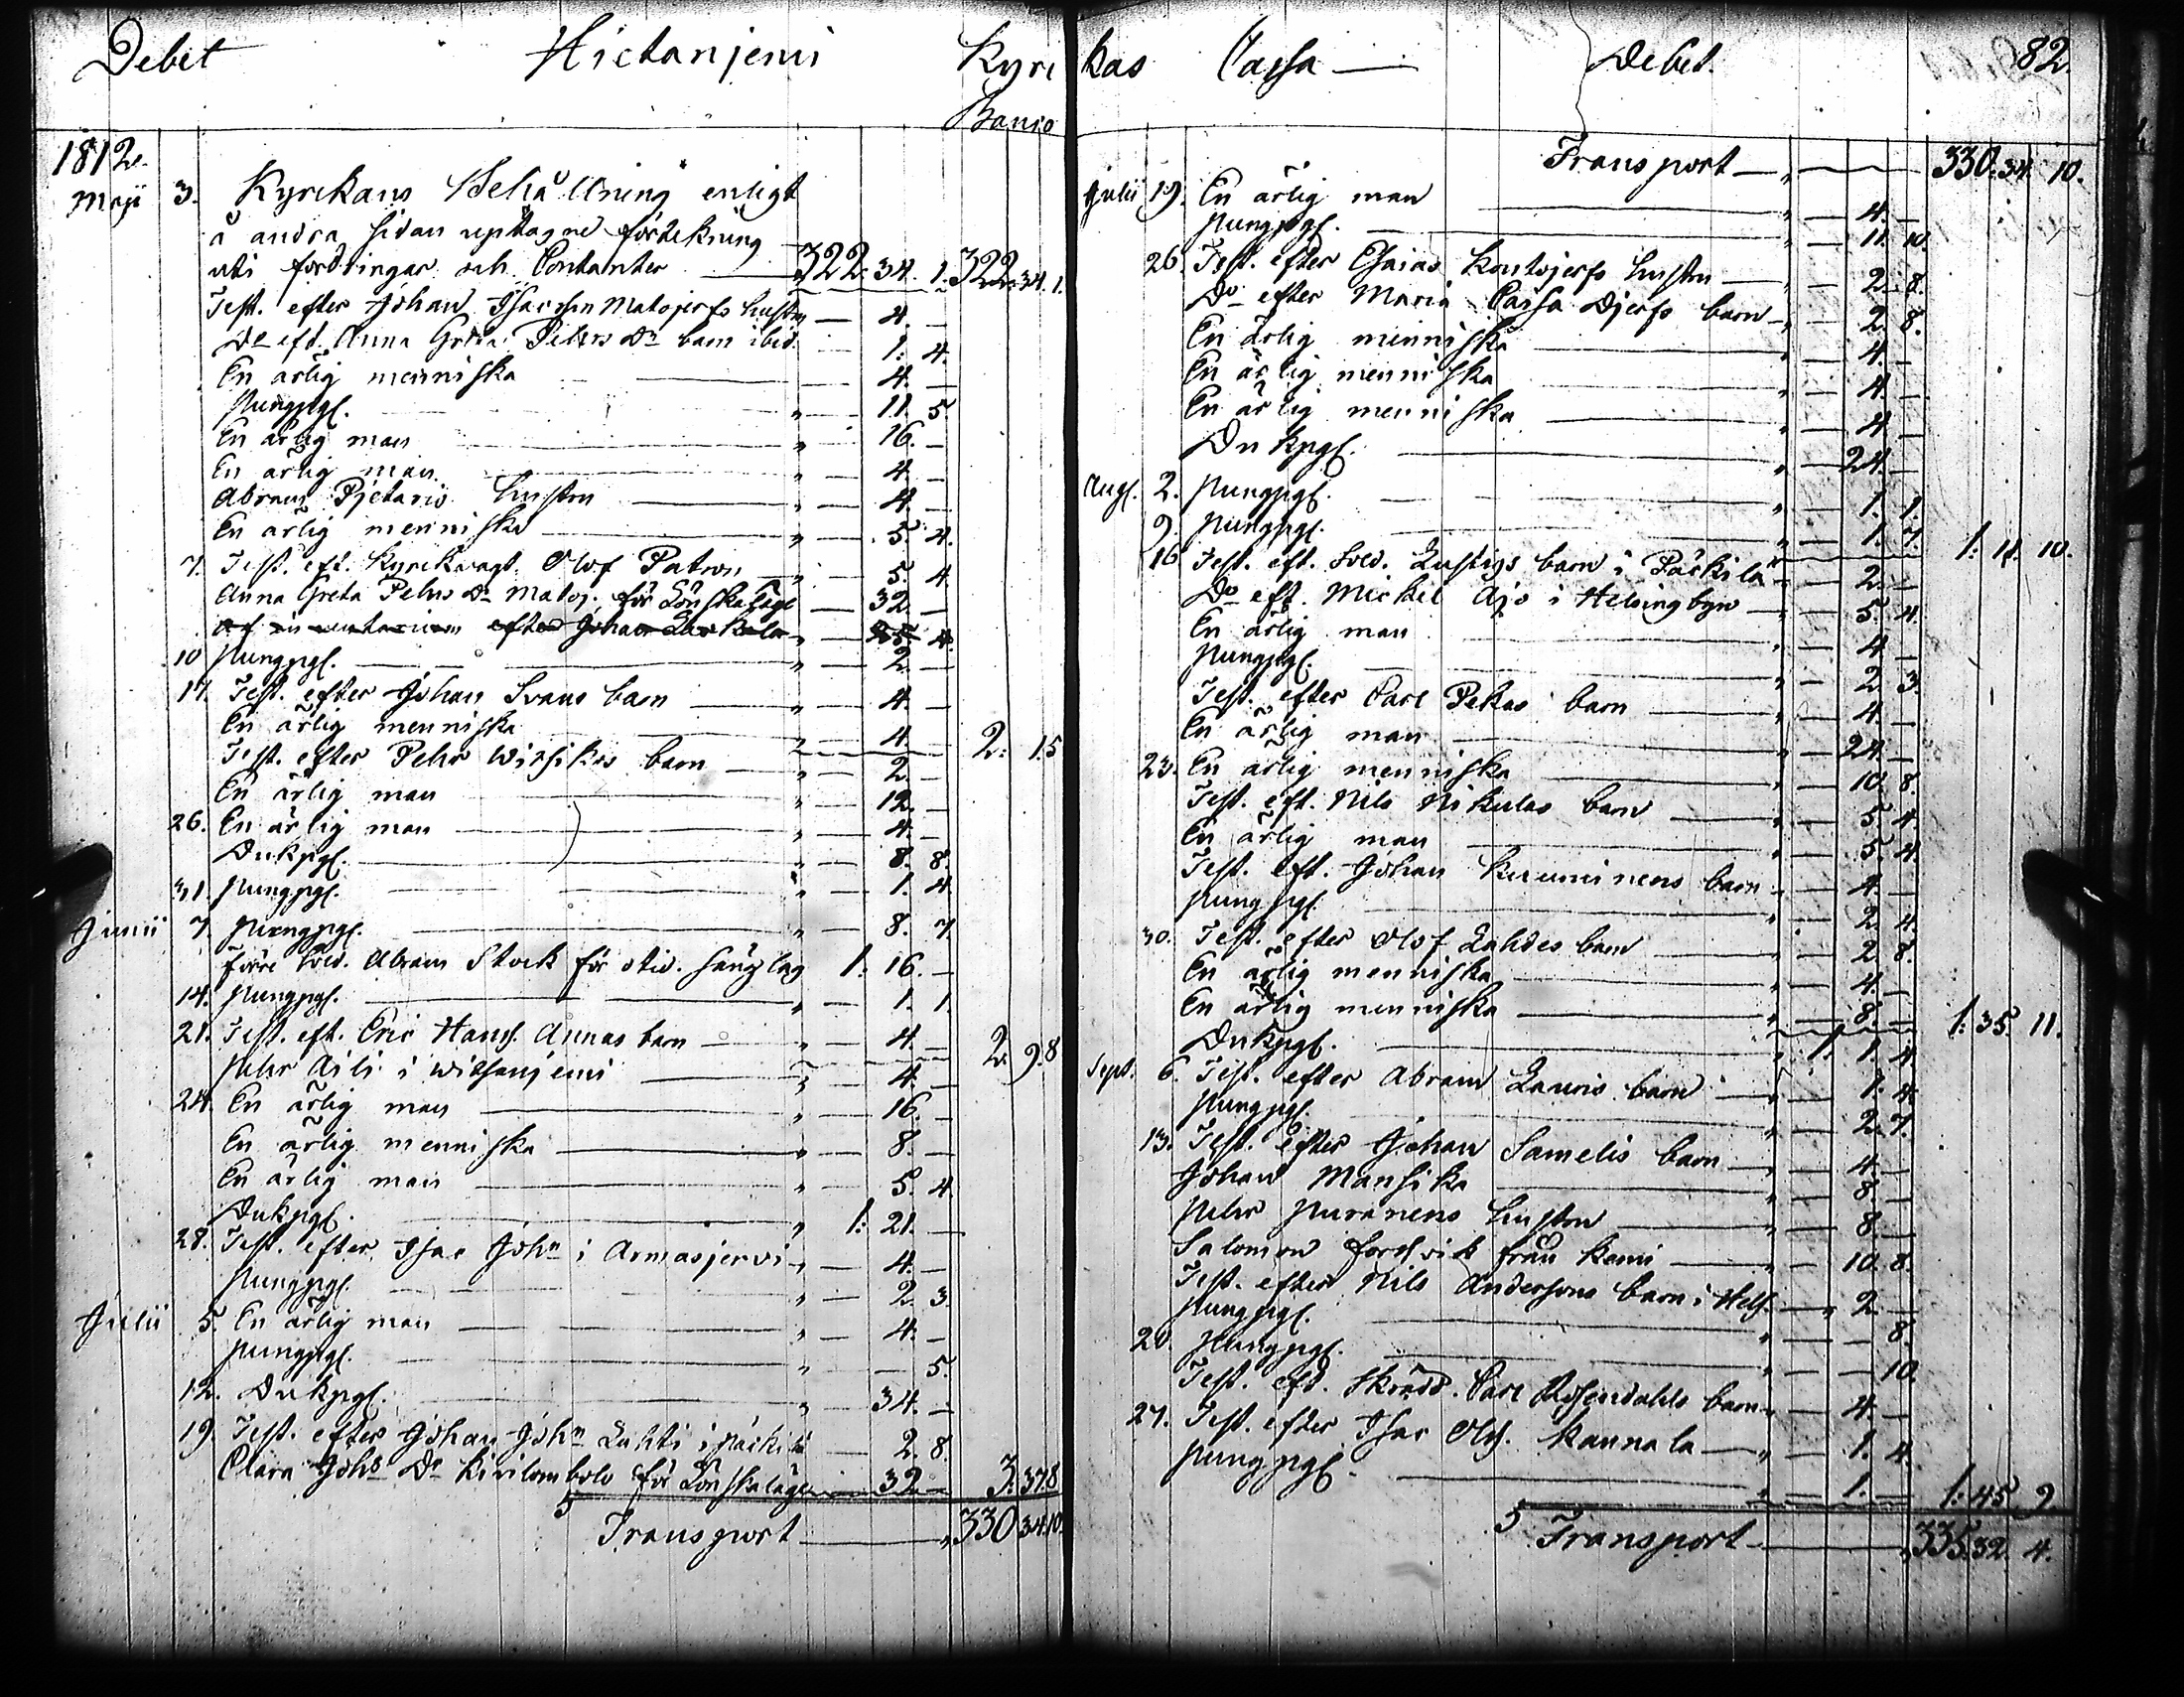 Debit Hietanjemi Kyri
Banco
1812.
Maji 3. Kyrckans Behållning enligt
å andra sidan uptagne förtekning
uti fordringar och Contanter — 322. 34. 1. 322. 34. 1.
Test. efter Johan Isacson Matojerfs hustru — 4. —
Do eft. Anna Greta Pehrs Dr barn ibid. 1. 4.
En ärlig menniska — 4. —
Pungpgr. — 11. 5.
En ärlig man — 16. —
En ärlig man — 4. —
Abram Pjetaris hustru — 4. —
En ärlig menniska — 5. 4.
7. Test. eft. Kyrckvagt. Olof Patron — 5. 4.
Anna Greta Pehrs Dr Matoj. för Lönskaläge — 32. —
Af inventarium efter Johan — 25. 4.
10 Pungpgr. — 2. —
17. Test. efter Johan Svans barn — 4. —
En ärlig menniska — 4. — 2. 15
Test. efter Pehr barn — 2. —
En ärlig man — 12. —
26. En ärlig man — 4. —
Dukpgr. — 8. 8.
31. Pungpgr. — 1. 4.
Junii 7. Pungpgr. — 8. 7.
Förre Sold. Abram Stock för otid. sänglag 1. 16. —
14. Pungpgr. — 1. 1.
21. Test. eft. Eric Hans. Annas barn — 4. — 2. 9. 8
Pehr Aili i Witsanjemi — 4. —
24. En ärlig man — 16. —
En ärlig menniska — 8. —
En ärlig man — 5. 4.
Dukpgr. — 1: 21. —
28. Test. efter Isac John i Armasjervi — 4. —
Pungpgr. — 2. 3.
Julii 5. En ärlig man — 4. —
Pungpgr. — 5.
12. Dukpgr. — 34. —
19. Test. efter Johan John Lahti i Päckilä — 2. 8.
Clara Johs Dr Kivilombolo för Lönskaläge — 32. — 3. 37. 8
5
Transport — 330 34. 10.
kas Cassa — Debet. 82.
Transport — 330. 34. 10.
Julii 19. En ärlig man — 4. —
Pungpgr. — 11. 10.
26. Test. efter Esaias Kontojerfs hustru — 2. 8.
Do efter Maria barn — 2. 8.
En ärlig menniska — 4. —
En ärlig menniska — 4. —
En ärlig menniska — 4 —
Dukpgr. — 24. —
Aug. 2. Pungpgr. — 1. 1.
9. Pungpgr. — 1. 7. 1: 11. 10.
16 Test. eft. Sold. Lustigs barn i Päckilä — 2. —
Do eft. Mickel Ajo i Helsingbyn — 5. 4.
En ärlig man — 4. —
Pungpgr. — 2. 3.
Test. efter Carl Pekas barn — 4. —
En ärlig man — 24. —
23. En ärlig menniska — 10. 8.
Test. eft. Nils Nikulas barn — 5. 4.
En ärlig man — 5. 4.
Test. eft. Johan barn — 4. —
Pungpgr. — 2. 4.
30. Test. efter Olof Lahdes barn — 2. 8.
En ärlig menniska — 4. —
En ärlig menniska — 8. — 1: 35. 11.
Dukpgr. — 1. 1. 4
Sept. 6. Test. efter Abram Lauris barn — 1. 4.
Pungpgr. — 2. 7.
13. Test. efter Johan Samelis barn — 4. —
Johan Mansika — 8 —
Pehr Puranens hustru — 8. —
Salomon från Kemi — 10. 8.
Test. efter Nils Andersons barn i Hels. — 2. —
Pungpgr. — 8.
20. Pungpgr. — 10.
Test. eft. Skrädd. Carl Rosendahls barn — 4. —
27. Test. efter Isac Ols. Kannala — 1. 4.
Pungpgr. — 1. — 1: 45. 9
5 Transport — 335. 32. 4.